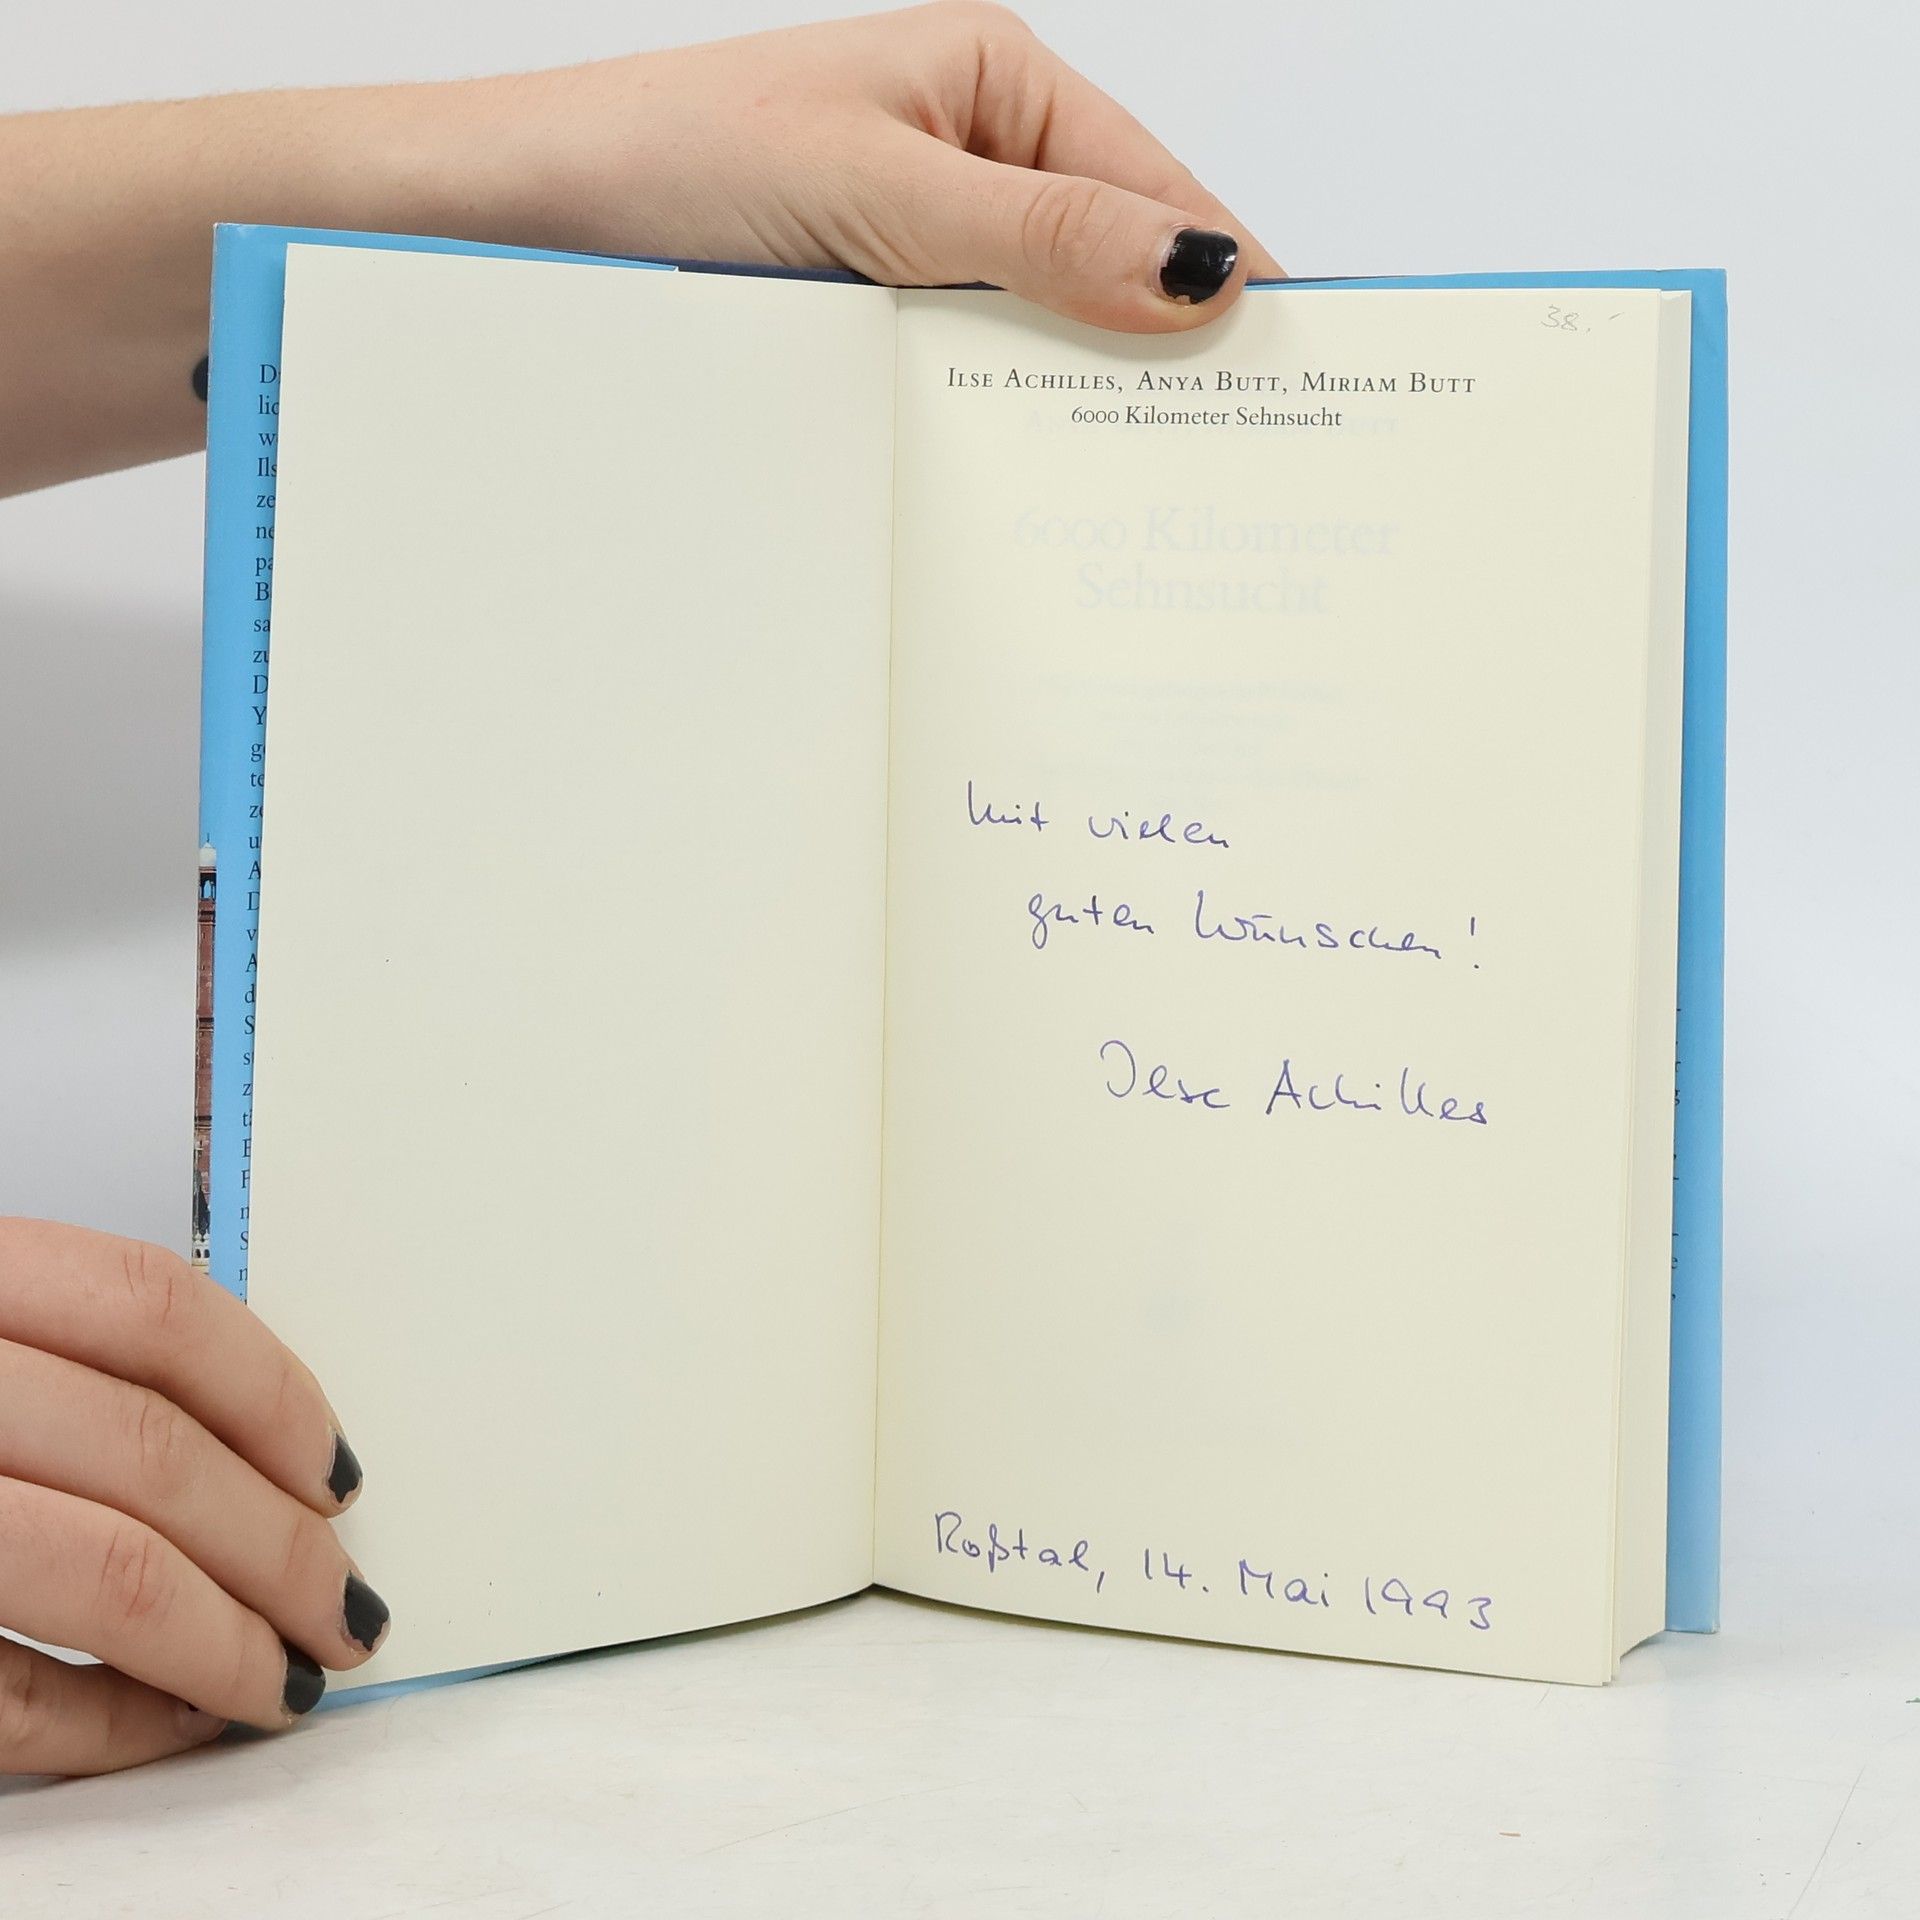 38.-
ILSE ACHILLES, ANYA BUTT, MIRIAM BUTT
6000 Kilometer Sehnsucht
6000 Kilometer
Sehnsucht
Mit vielen
guten Wünschen!
Ilse Achilles
Roßtal, 14. Mai 1993